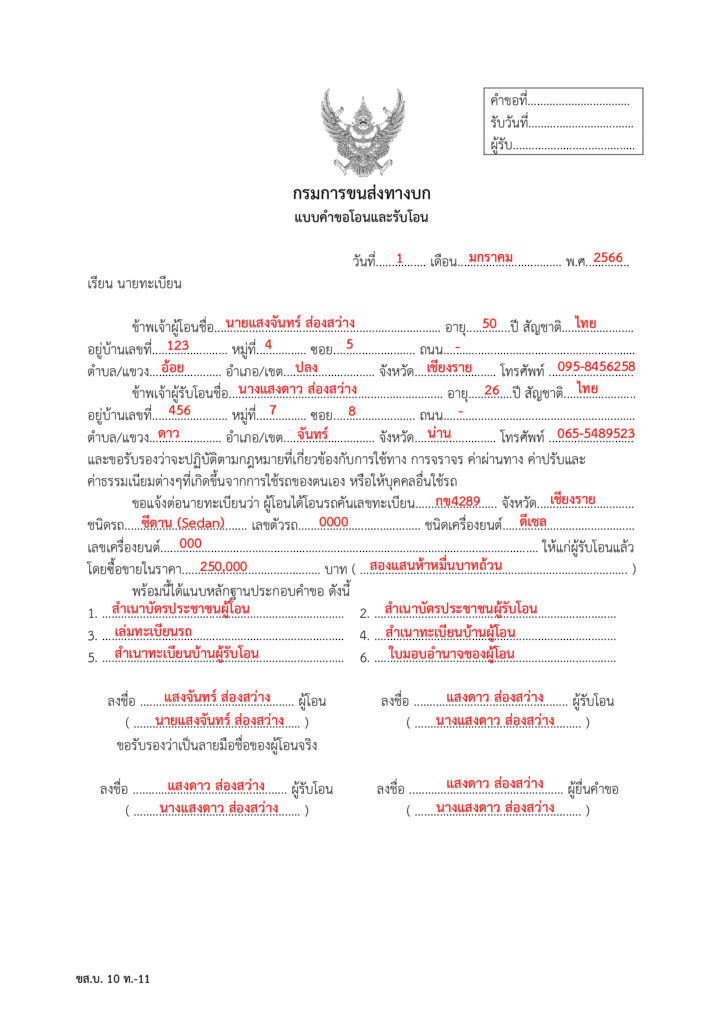 คำขอที่................................
รับวันที่.................................
ผู้รับ......................................
กรมการขนส่งทางบก
แบบคำขอโอนและรับโอน
วันที่.....1.......... เดือน...มกราคม............... พ.ศ..2566....
เรียน นายทะเบียน
ข้าพเจ้าผู้โอนชื่อ...นายแสงจันทร์ ส่องสว่าง........................... อายุ....50....ปี สัญชาติ....ไทย............
อยู่บ้านเลขที่....123............ หมู่ที่..4........... ซอย......5................ ถนน...-..................................................
ตำบล/แขวง...อ้อย........... อำเภอ/เขต....ปลง................ จังหวัด...เชียงราย...... โทรศัพท์ ..095-8456258
ข้าพเจ้าผู้รับโอนชื่อ...นางแสงดาว ส่องสว่าง........................... อายุ....26....ปี สัญชาติ....ไทย............
อยู่บ้านเลขที่....456............ หมู่ที่...7.......... ซอย......8................ ถนน...-..................................................
ตำบล/แขวง..ดาว............... อำเภอ/เขต....จันทร์............... จังหวัด...น่าน............ โทรศัพท์ ..065-5489523
และขอรับรองว่าจะปฏิบัติตามกฎหมายที่เกี่ยวข้องกับการใช้ทาง การจราจร ค่าผ่านทาง ค่าปรับและ
ค่าธรรมเนียมต่างๆที่เกิดขึ้นจากการใช้รถของตนเอง หรือให้บุคคลอื่นใช้รถ
ขอแจ้งต่อนายทะเบียนว่า ผู้โอนได้โอนรถคันเลขทะเบียน......กข4289..... จังหวัด...เชียงราย............
ชนิดรถ.....ซีดาน (Sedan)...... เลขตัวรถ......0000...................... ชนิดเครื่องยนต์.....ดีเซล...........................
เลขเครื่องยนต์.....000.................................................................................................... ให้แก่ผู้รับโอนแล้ว
โดยซื้อขายในราคา.....250,000.................... บาท ( ...สองแสนห้าหมื่นบาทถ้วน...................................... )
พร้อมนี้ได้แนบหลักฐานประกอบคำขอ ดังนี้
1. ...สำเนาบัตรประชาชนผู้โอน........................... 2. ...สำเนาบัตรประชาชนผู้รับโอน........................
3. ...เล่มทะเบียนรถ............................................. 4. ...สำเนาทะเบียนบ้านผู้โอน.............................
5. ...สำเนาทะเบียนบ้านผู้รับโอน........................ 6. ....ใบมอบอำนาจของผู้โอน.............................
ลงชื่อ .......แสงจันทร์ ส่องสว่าง....... ผู้โอน ลงชื่อ .........แสงดาว ส่องสว่าง....... ผู้รับโอน
( ......นายแสงจันทร์ ส่องสว่าง..... ) ( .......นางแสงดาว ส่องสว่าง........ )
ขอรับรองว่าเป็นลายมือชื่อของผู้โอนจริง
ลงชื่อ .........แสงดาว ส่องสว่าง....... ผู้รับโอน ลงชื่อ .........แสงดาว ส่องสว่าง....... ผู้ยื่นคำขอ
( .......นางแสงดาว ส่องสว่าง....... ) ( .......นางแสงดาว ส่องสว่าง........ )
ขส.บ. 10 ท.-11